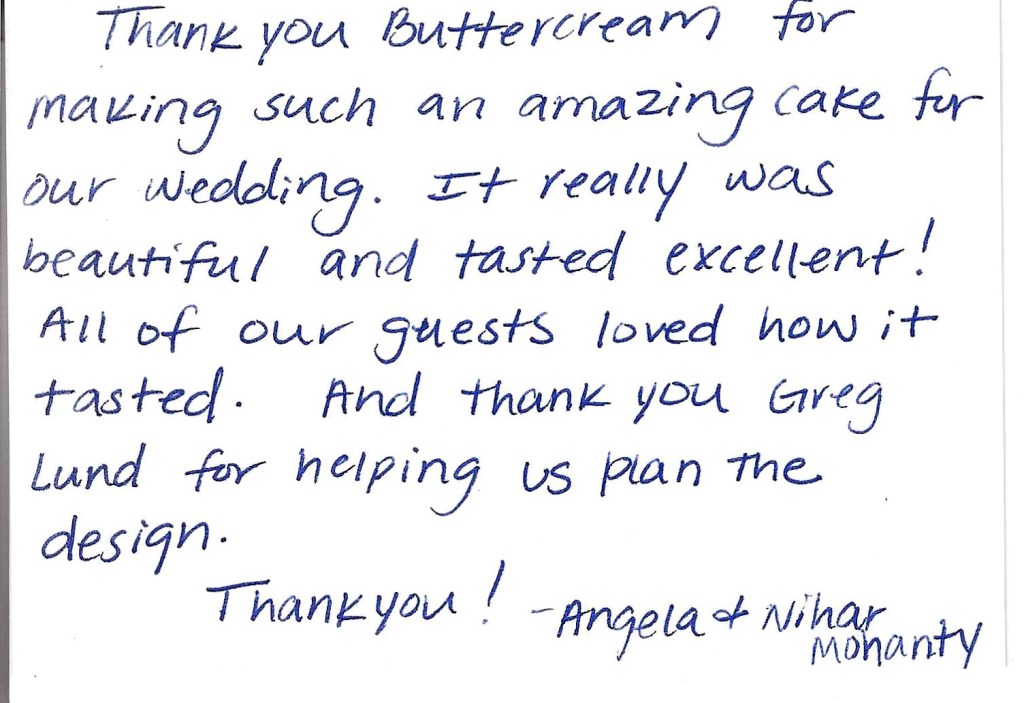 Thank you Buttercream for
making such an amazing cake for
our wedding. It really was
beautiful and tasted excellent!
All of our guests loved how it
tasted. And thank you Greg
Lund for helping us plan the
design.
Thank you! -Angela & Nihar
Mohanty